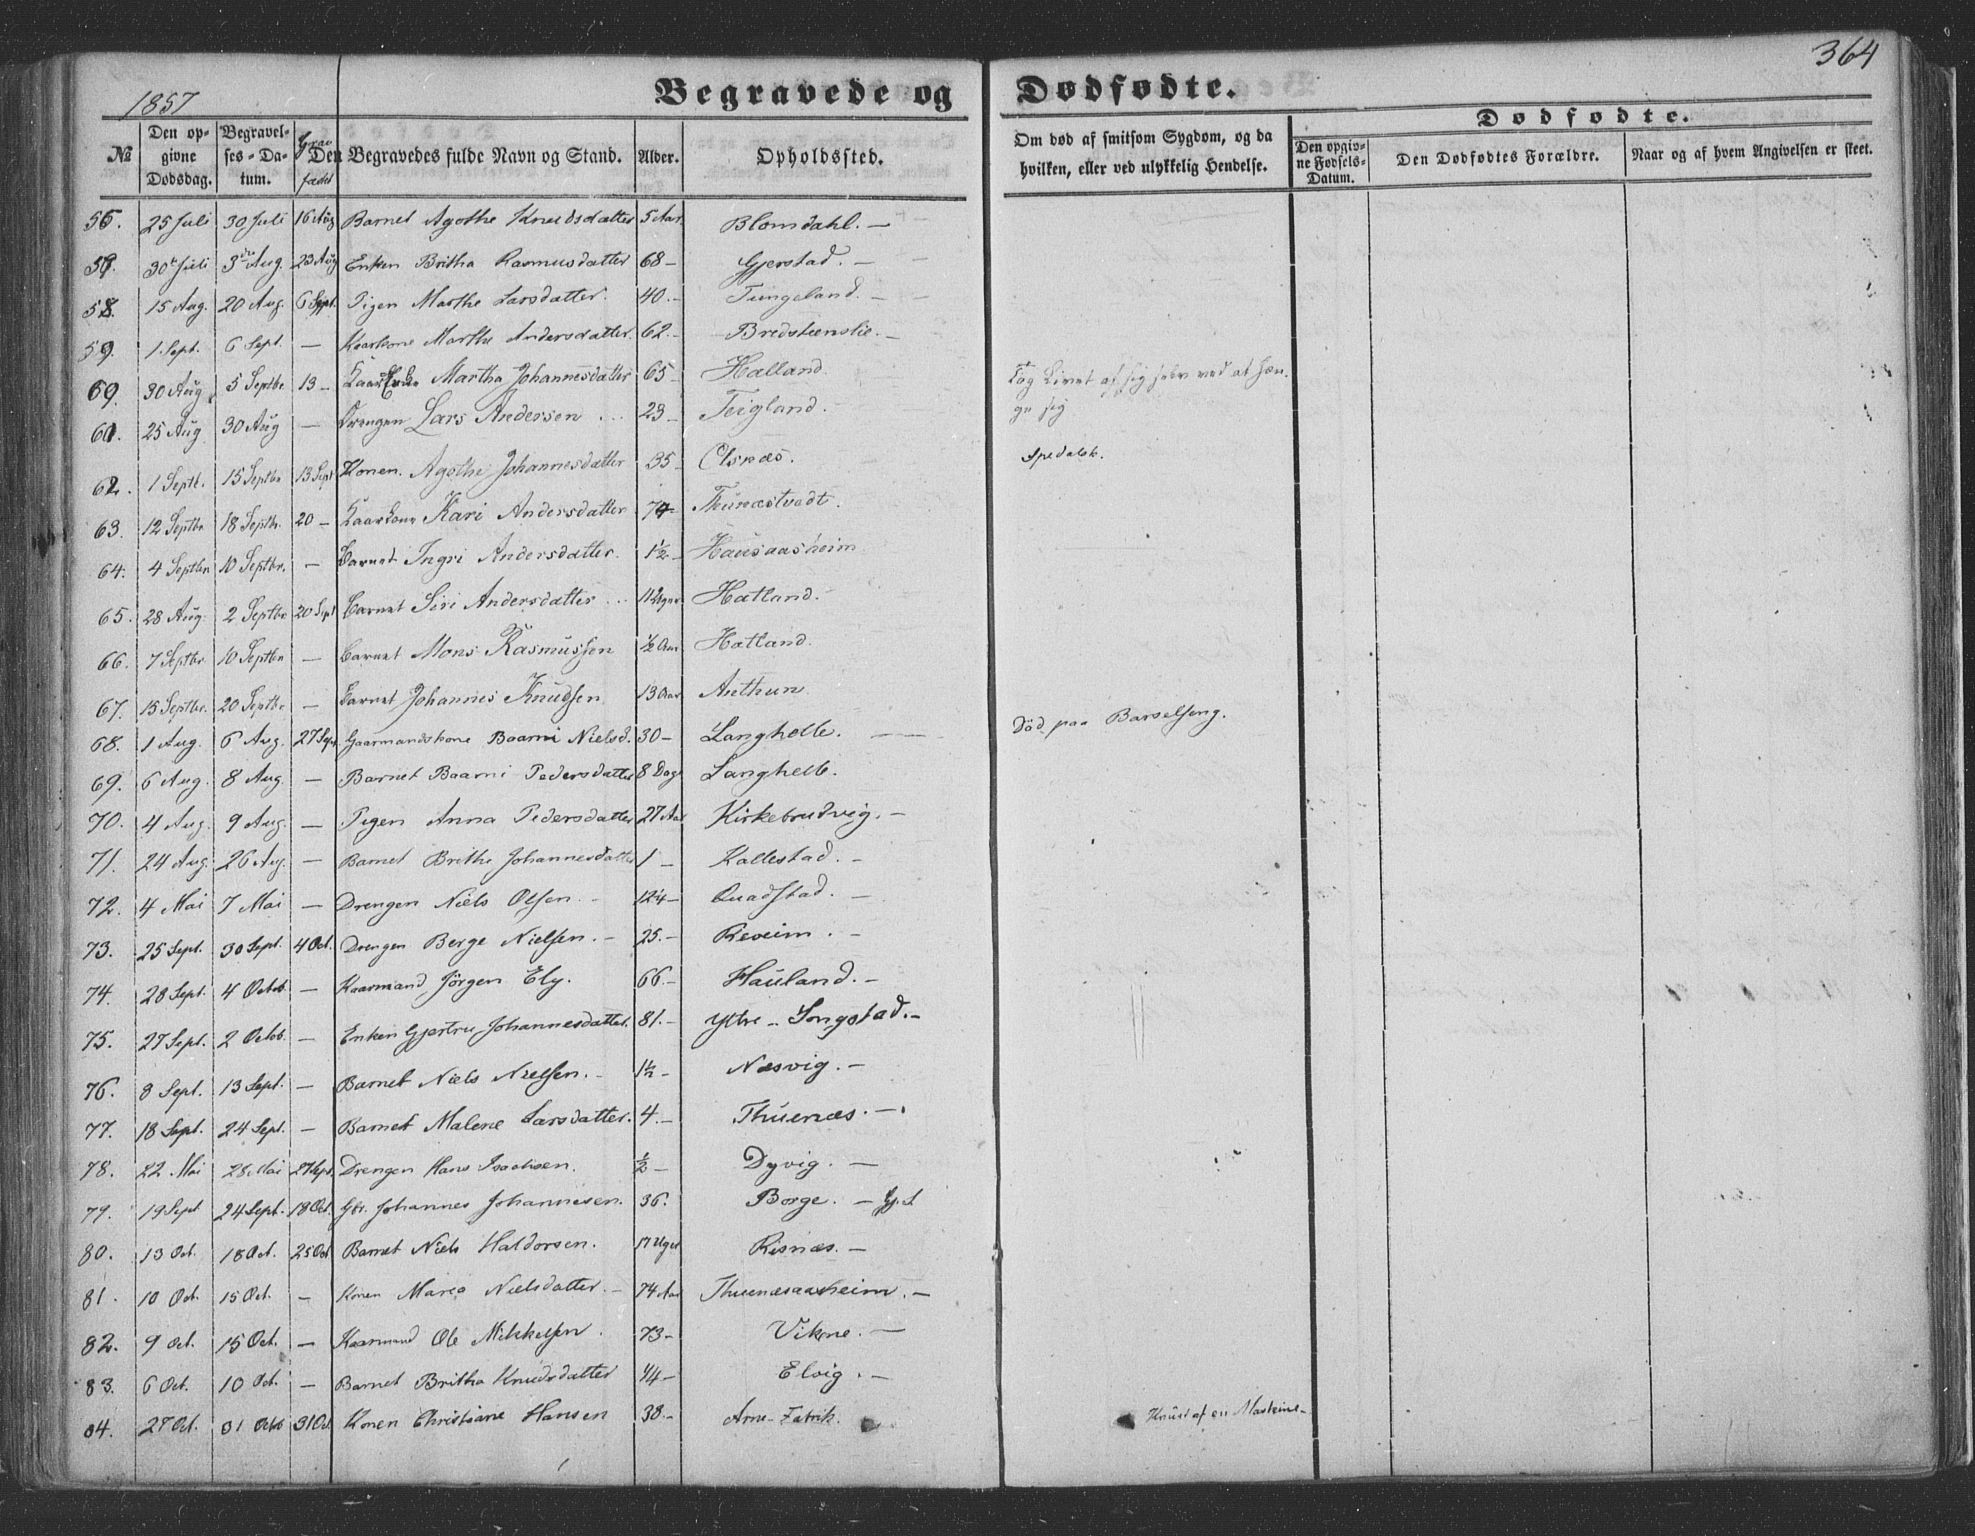 364
1857 Begravede og Dødfødte.
Dødfødte.
No Den opgivne Dødsdag. Begravelses-Datum. Grav fæstet Den Begravedes fulde Navn og Stand. Alder. Opholdssted. Om død af smitsom Sygdom, og da hvilken, eller ved ulykkelig Hendelse. Den opgivne Fødsels-Datum. Den Dødfødtes Forældre. Naar og af hvem Angivelsen er skeet.
56. 25 Juli 30 Juli 16 Aug Barnet Agothe Knudsdatter 5 Aar Blomdahl. —
59. 30t Juli 3die Aug. 23 Aug Enken Britha Rasmusdatter 68 — Gjerstad. —
58. 15 Aug. 20 Aug. 6 Sept. Pigen Marthe Larsdatter. 40. — Tungeland. —
59. 1 Sept. 6 Sept. — Kaarkone Marthe Andersdatter 62. — Bredsteenslie. —
60. 30 Aug 5 Septbr 13 — Martha Johannesdatter 65 Halland. Tog Livet af sig selv ved at hænge sig
61. 25 Aug 30 Aug — Drengen Lars Andersen 23 — Teigland.
62. 1 Septb. 15 Septbr 13 Sept Konen Agothe Johannesdatter 35 — Olsnæs. Spedalsk.
63. 12 Septbr 18 Septbr. 20 — Kaarkone Kari Andersdatter 74 Thunæstvedt.
64. 4 Septbr 10 Septbr. — Barnet Ingri Andersdatter. 1½ — Hausaasheim
65. 28 Aug. 2 Septbr 20 Sept Barnet Siri Andersdatter Hatland.
66. 7 Septbr. 10 Septbr — Barnet Mons Rasmussen ½ Aar Hatland.
67. 15 Septbr. 20 Septbr — Barnet Johannes Knudsen 13 Aar Aathun
68. 1 Aug. 6 Aug. 27 Sept. Gaarmandskone Baarni Nielsd. 30 — Langhelle. Död paa Barselseng.
69. 6 Aug. 8 Aug. — Barnet Baarni Pedersdatter 8 Dage Langhelle.
70. 4 Aug. 9 Aug. — Pigen Anna Pedersdatter 27 Aar Kirkebrudvig. —
71. 24 Aug. 26 Aug. — Barnet Brithe Johannesdatter 1 — Kallestad. —
72. 4 Mai 7 Mai — Drengen Niels Olsen. — 12¼ — Quadstad. —
73. 25 Sept. 30 Sept. 4 Oct. Drengen Berge Nielsen. — 25. — Reveim. —
74. 28 Sept. 4 Octob — Kaarmand Jörgen Ely. 66. — Hauland. —
75. 27 Sept. 2 Octob. — Enken Gjertru Johannesdatter. 81. — Yttre - Songstad. —
76. 8 Sept. 13 Sept. — Barnet Niels Nielsen. — 1½ — Næsvig. —
77. 18 Sept. 24 Sept. — Barnet Malene Larsdatter. 4. — Thuenæs. —
78. 22. Mai 28 Mai 27 Sept. Drengen Hans Isachsen. ½ — Dyvig. —
79. 19 Sept 24 Sept. 18 Oct. Gbr. Johannes Johannesen. 36. Borge. —
80. 13 Oct. 18 Oct. 25 Oct Barnet Niels Haldorsen. 17 Uger Risnæs. —
81. 10 Oct. 15 Oct. — Konen Marea Nielsdatter. — 74 Aar Thuenæsaasheim. —
82. 9 Oct. 15 Oct. — Kaarmand Ole Mikkelsen. 73 — Vikene. —
83. 6 Oct. 10 Oct. — Barnet Britha Knudsdatter ¼ — Elvig. —
84. 27 Oct. 31 Octob 31 Oct. Konen Christiane Hansen 38. — Arne-Fabrik. Knust af en Maskine —